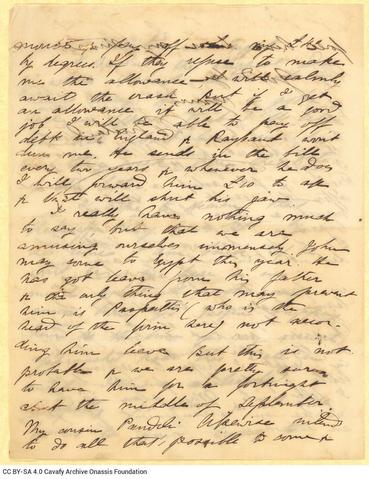 by degrees. If they refuse to make
me the allowance I will calmly
await the crash. But if I get
an allowance it will be a good
job I will be able to pay off
debts in England & wont
dun me. He sends in the bill
every two years & whenever he does
I will forward him £10 to
& that will shut his paw.
I really have nothing much
to say, but that we are
amusing ourselves immensely. John
may come to Egypt this year. He
has got leave from his father
& the only thing that may prevent
him, is (who is the
head of the firm here) not accor-
ding him leave. But this is not
probable & we are pretty sure
to have him for a fortnight
about the middle of September.
My cousin Pandeli likewise intends
to do all that's possible to come &
CC BY-SA 4.0 Cavafy Archive Onassis Foundation